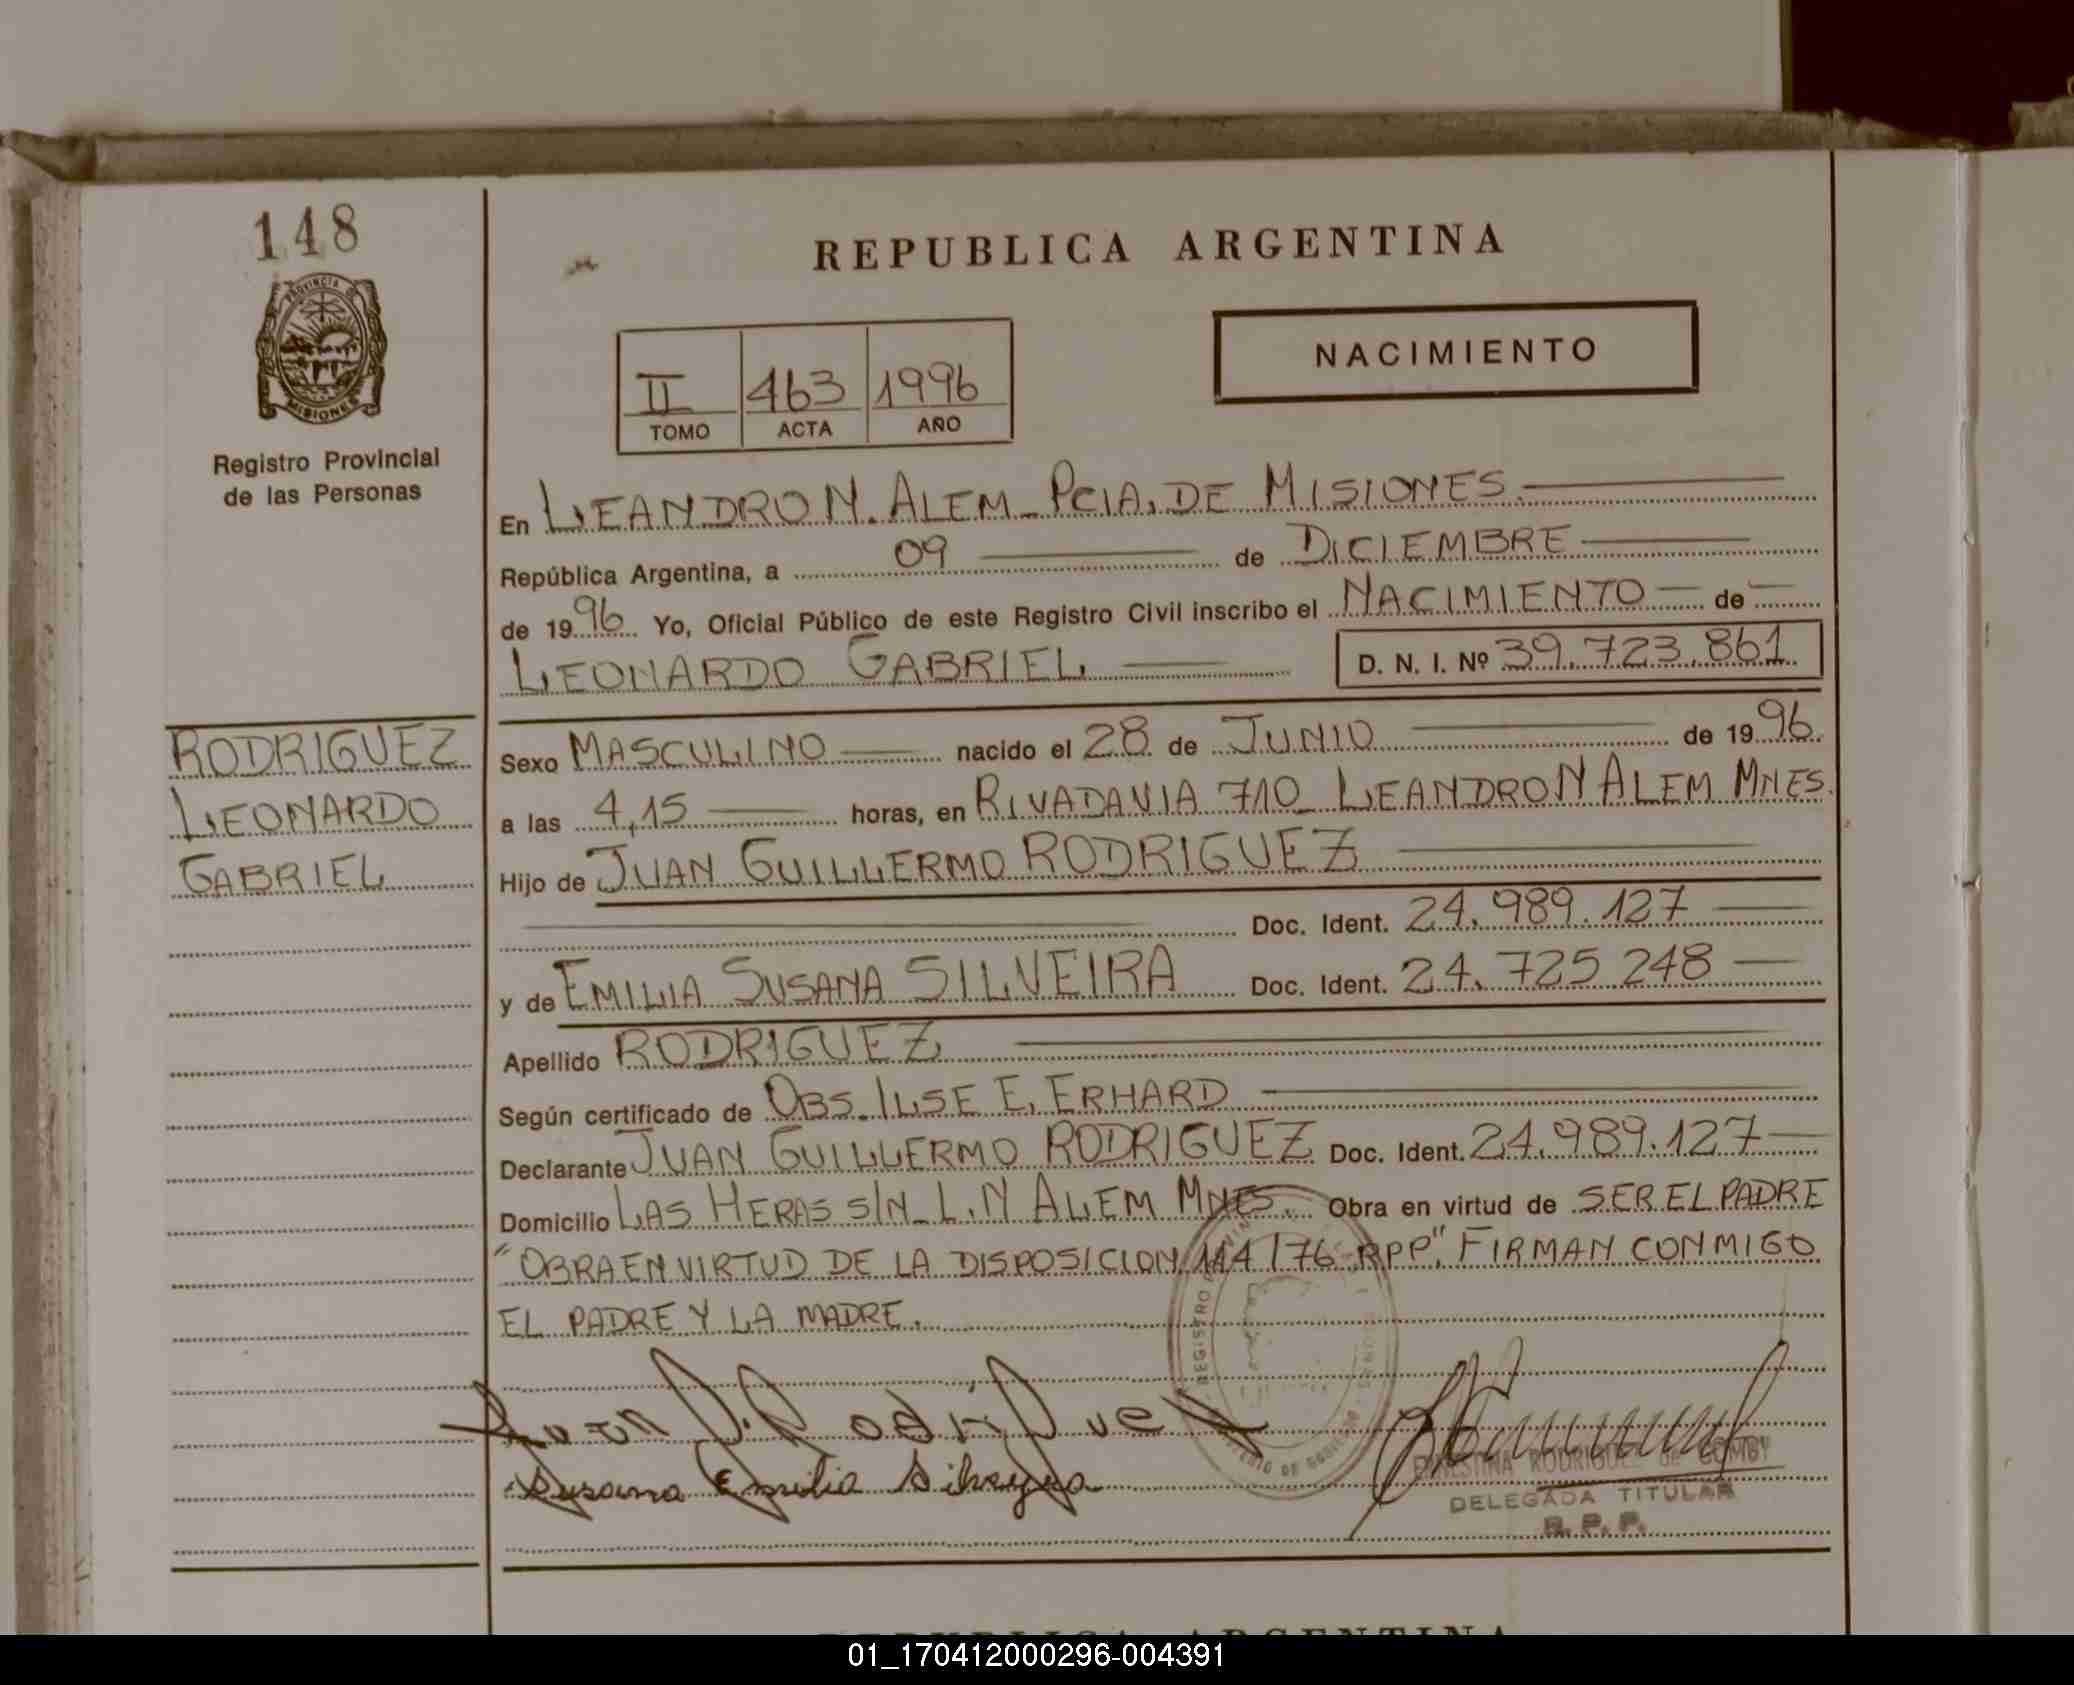 148
REPUBLICA ARGENTINA
PROVINCIA DE
MISIONES
NACIMIENTO
II 463 1996
TOMO ACTA AÑO
Registro Provincial
de las Personas
En LEANDRO N. ALEM - PCIA. DE MISIONES.
República Argentina, a 09 de DICIEMBRE
de 1996 Yo, Oficial Público de este Registro Civil inscribo el NACIMIENTO de
LEONARDO GABRIEL D. N. I. Nº 39.723.861
RODRIGUEZ
LEONARDO
GABRIEL
Sexo MASCULINO nacido el 28 de JUNIO de 1996.
a las 4,15 horas, en RIVADAVIA 710 - LEANDRO N ALEM MNES.
Hijo de JUAN GUILLERMO RODRIGUEZ
Doc. Ident. 24.989.127
y de EMILIA SUSANA SILVEIRA Doc. Ident. 24.725.248
Apellido RODRIGUEZ
Según certificado de OBS. ILSE E. ERHARD
Declarante JUAN GUILLERMO RODRIGUEZ Doc. Ident. 24.989.127
Domicilio LAS HERAS S/N - L. N ALEM MNES. Obra en virtud de SER EL PADRE
"OBRA EN VIRTUD DE LA DISPOSICION 114/76 RPP". FIRMAN CONMIGO
EL PADRE Y LA MADRE.
REGISTRO
Juan G. Rodriguez
Susana Emilia Silveyra
ERNESTINA RODRIGUEZ de GOMBY
DELEGADA TITULAR
R. P. P.
REPUBLICA ARGENTINA
01_170412000296-004391